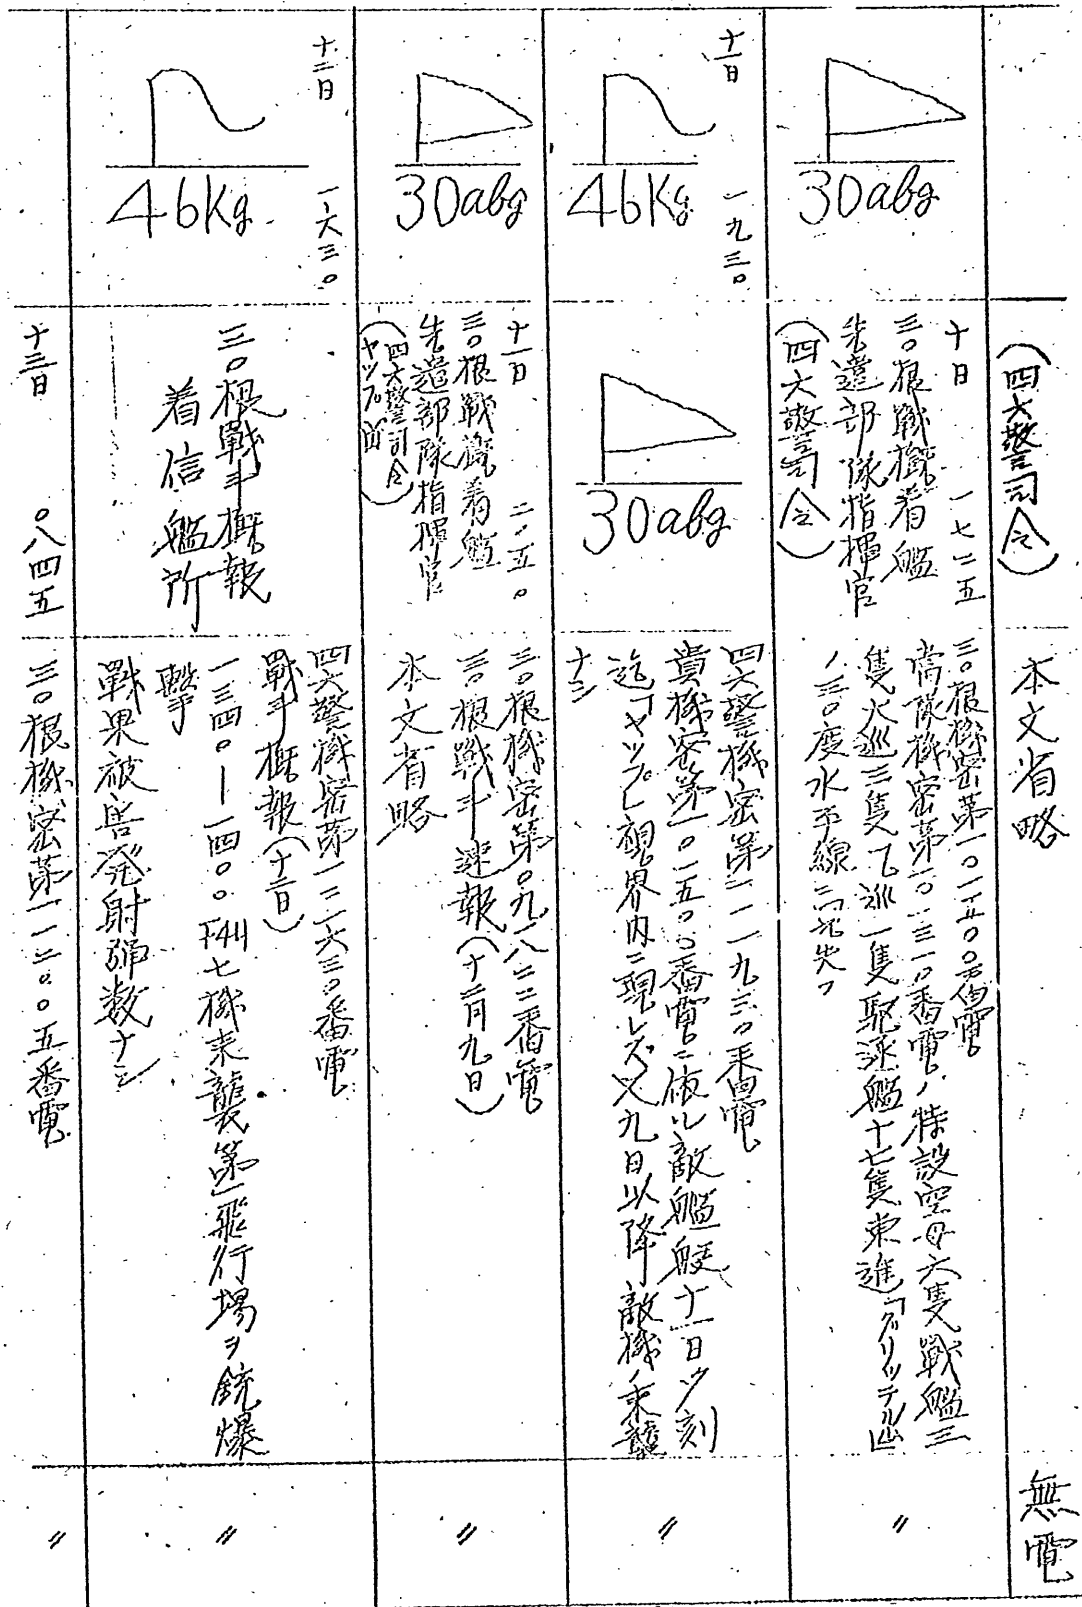 (四六警司令)
本文省略
無電
30abg
十日 一七二五
三〇根戦機着艦
先遣部隊指揮官
(四六警司令)
三〇根機密第一〇一五〇〇番電
当隊機密第一〇一三一〇番電ノ特設空母六隻戦艦三
隻大巡三隻乙巡一隻駆逐艦十七隻東進「グリッテル」山
ノ三〇度水平線ニ見失フ
〃
十一日 一九三〇
46Kg
30abg
四六警機密第一一一九三〇番電
貴機密第一〇一五〇〇番電ニ依ル敵艦艇十一日夕刻
迄「ヤップ」視界内ニ現レズ又九日以降敵機ノ来襲
ナシ
〃
30abg
十一日 二〇五〇
三〇根戦機着艦
先遣部隊指揮官
(四六警司令)
ヤップ
三〇根機密第〇九一八二二番電
三〇根戦斗速報(十二月九日)
本文省略
〃
十二日 一六三〇
46Kg
三〇根戰斗概報
着信艦所
四六警機密第一二一六三〇番電
戰斗概報(十二日)
一三四〇—一四〇〇F4U七機来襲第一飛行場ヲ銃爆
撃
戰果被害発射弾数ナシ
〃
十三日 〇八四五
三〇根機密第一一二〇〇五番電
〃